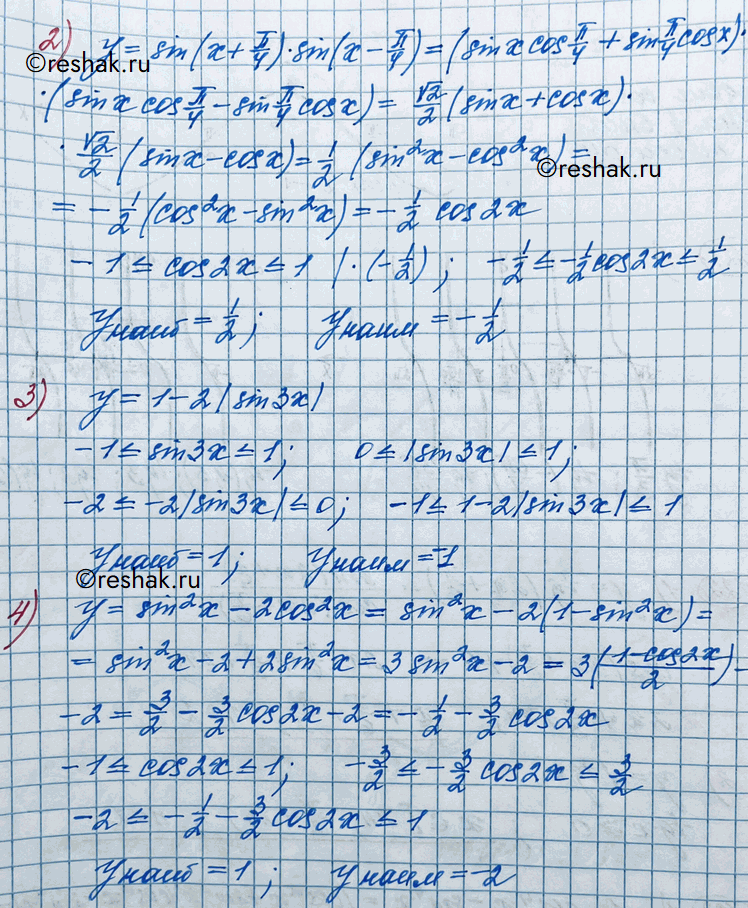 2) y = sin(x + π/4) · sin(x − π/4) = (sin x cos π/4 + sin π/4 cos x) ·
©reshak.ru
· (sin x cos π/4 − sin π/4 cos x) = √2/2 (sin x + cos x) ·
· √2/2 (sin x − cos x) = 1/2 (sin²x − cos²x) =
©reshak.ru
= −1/2 (cos²x − sin²x) = −1/2 cos 2x
−1 ≤ cos 2x ≤ 1 | · (−1/2) ; −1/2 ≤ −1/2 cos 2x ≤ 1/2
y наиб = 1/2 ; y наим = −1/2
3) y = 1 − 2|sin 3x|
−1 ≤ sin 3x ≤ 1 ; 0 ≤ |sin 3x| ≤ 1 ;
−2 ≤ −2|sin 3x| ≤ 0 ; −1 ≤ 1 − 2|sin 3x| ≤ 1
y наиб = 1 ; y наим = −1
©reshak.ru
4) y = sin²x − 2cos²x = sin²x − 2(1 − sin²x) =
= sin²x − 2 + 2sin²x = 3sin²x − 2 = 3((1 − cos 2x)/2) −
−2 = 3/2 − 3/2 cos 2x − 2 = −1/2 − 3/2 cos 2x
−1 ≤ cos 2x ≤ 1 ; −3/2 ≤ −3/2 cos 2x ≤ 3/2
−2 ≤ −1/2 − 3/2 cos 2x ≤ 1
y наиб = 1 ; y наим = −2